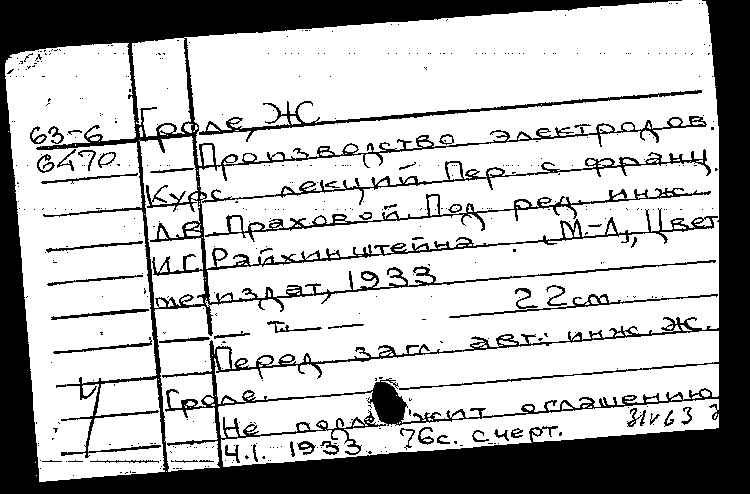 63-6 Гроле, Ж
6470. Производство электродов.
Курс лекций. Пер. с франц.
Л.В. Праховой. Под ред. инж.
И.Г. Райхинштейна. М-Л, Цвет
метиздат, 1933
22 см
т.
Перед загл. авт.: инж. Ж.
Гроле.
Не подлежит оглашению
Ч.I. 1933. 76с. с черт.